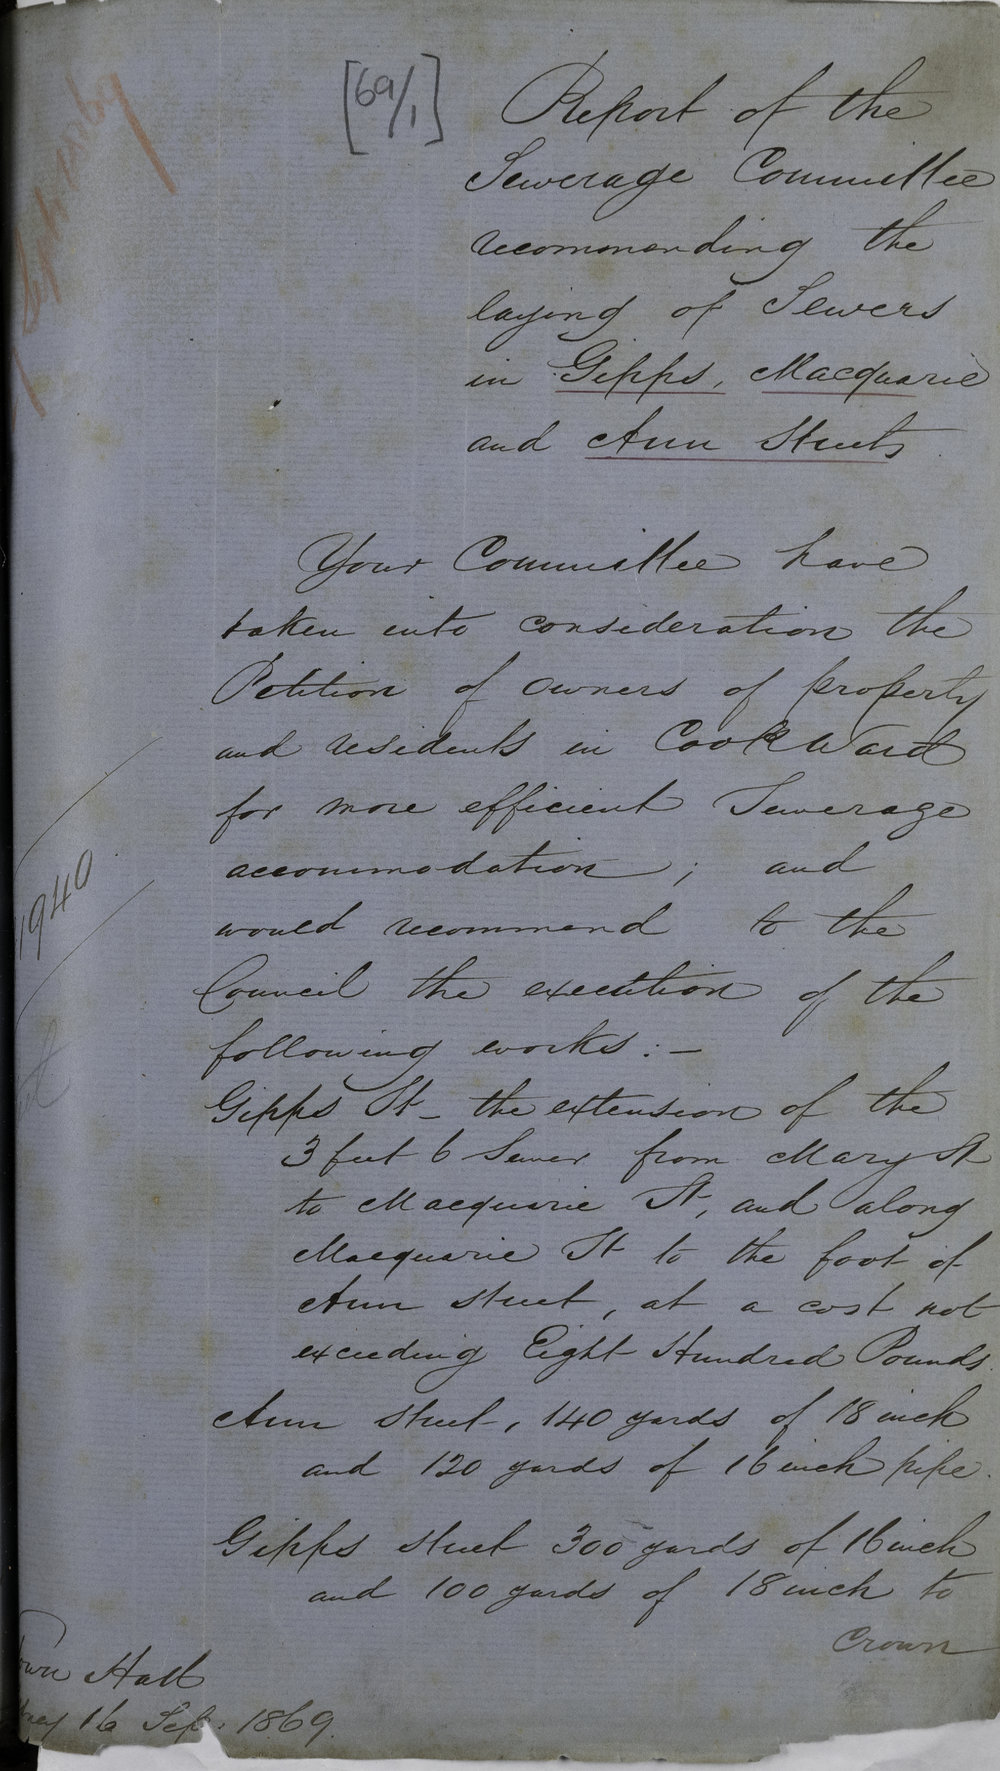 [69/1]
Report of the
Sewerage Committee
recommending the
laying of Sewers
in Gipps, Macquarie
and Ann Streets.
Your Committee have
taken into consideration the
Petition of owners of property
and residents in Cook Ward
for more efficient Sewerage
accommodation; and
would recommend to the
Council the execution of the
following works:-
Gipps St- the extension of the
3 feet 6 Sewer from Mary St
to Macquarie St, and along
Macquarie St to the foot of
Ann street, at a cost not
exceeding Eight Hundred Pounds.
Ann street, 140 yards of 18 inch
and 120 yards of 16 inch pipe.
Gipps street 300 yards of 16 inch
and 100 yards of 18 inch to
Crown
1940
own Hall
ney 16 Sep. 1869.